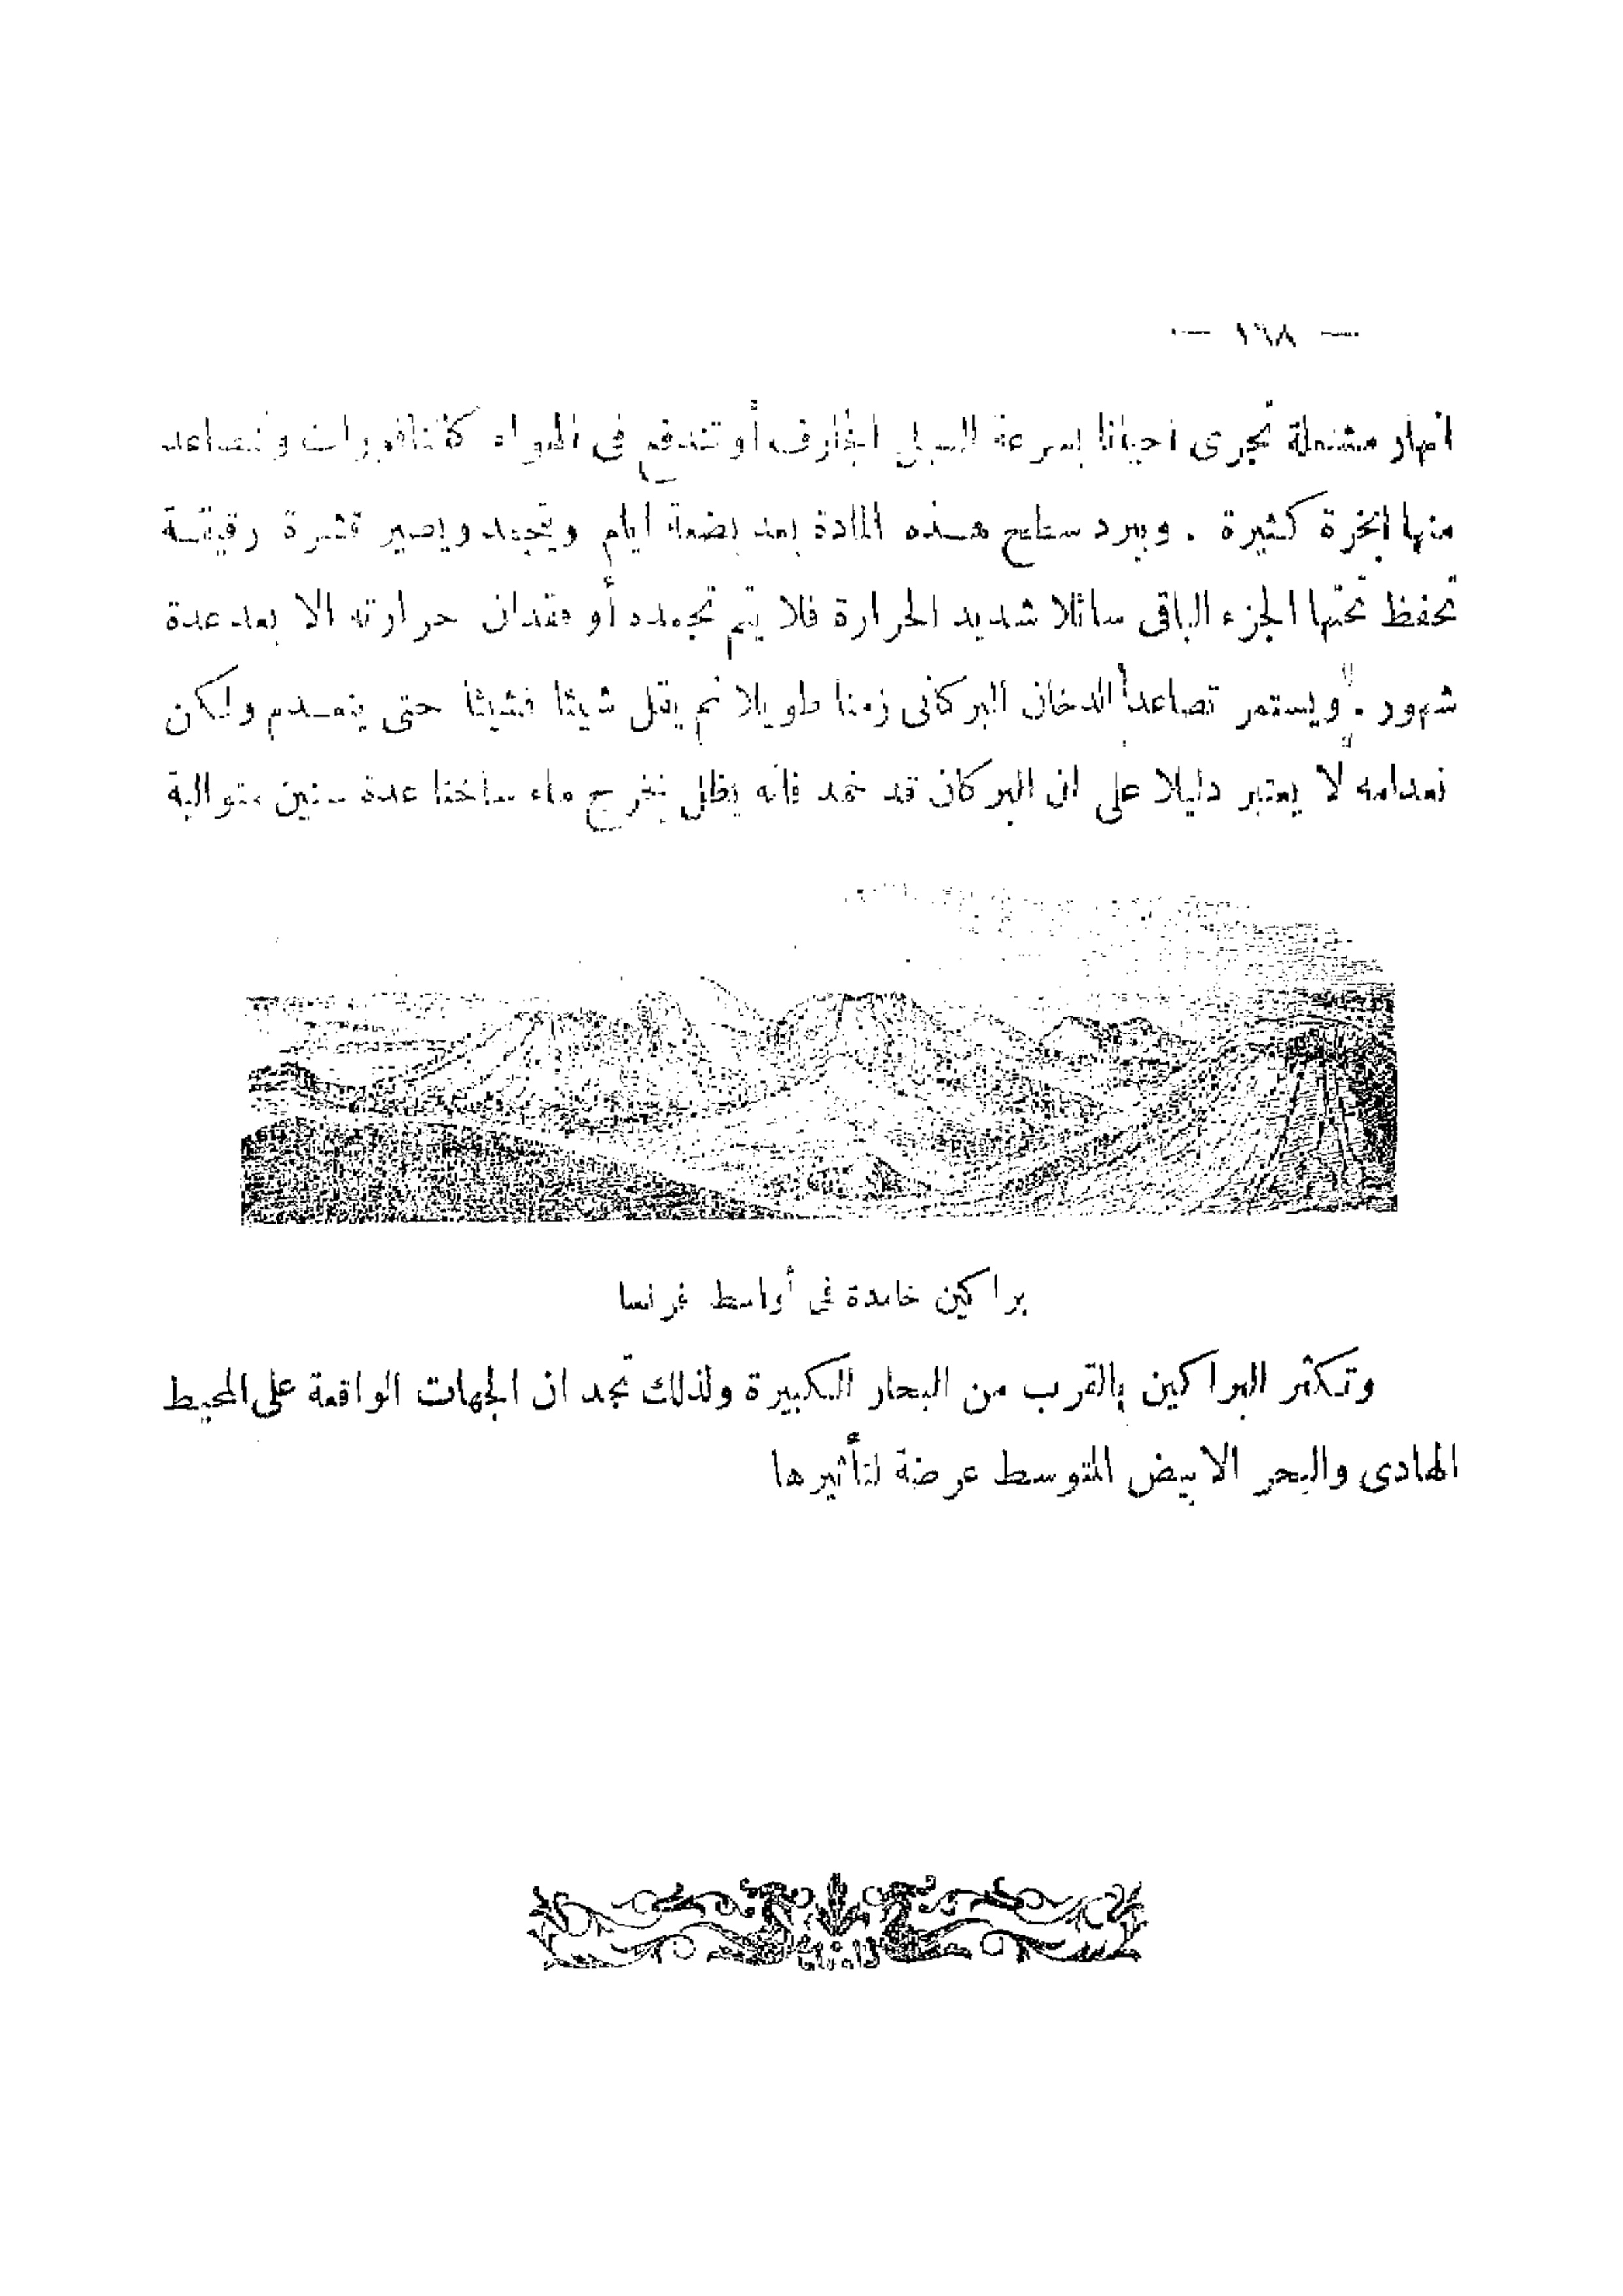 — ١٦٨ —
انهار مشتعلة تجرى احيانا بسرعة السيل الجارف أو تندفع فى الهواء كالنافورات وتتصاعد
منها ابخرة كثيرة . ويبرد سطح هـذه المادة بعد بضعة ايام ويتجمد ويصير قشرة رقيقـة
تحفظ تحتها الجزء الباقى سائلا شديد الحرارة فلا يتم تجمده أو فقدان حرارته الا بعد عدة
شهور . ويستمر تصاعد الدخان البركانى زمنا طويلا ثم يقل شيئا فشيئا حتى ينعـدم ولكن
نعدامه لا يعتبر دليلا على ان البركان قد خمد فانه يظل يخرج ماء ساخنا عدة سنين متوالية
براكين خامدة فى أواسط فرنسا
وتكثر البراكين بالقرب من البحار الكبيرة ولذلك تجد ان الجهات الواقعة على المحيط
الهادى والبحر الابيض المتوسط عرضة لتأثيرها